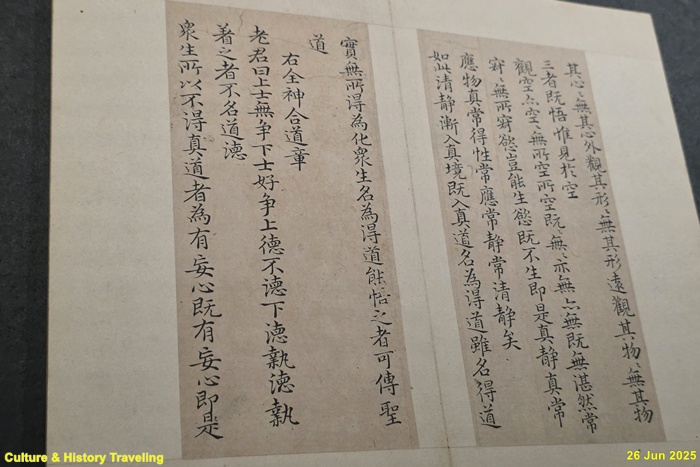 其心〻無其心外觀其形〻無其形遠觀其物〻無其物
三者既悟惟見於空
觀空亦空〻無所空所空既〻無〻亦無亦無既無湛然常
寂〻無所寂慾豈能生慾既不生即是真静真常
應物真常得性常應常静常清静矣
如此清静漸入真境既入真道名為得道雖名得道
實無所得為化衆生名為得道能悟之者可傳聖
道
右全神合道章
老君曰上士無争下士好争上德不德下德執德執
著之者不名道德
衆生所以不得真道者為有妄心既有妄心即是
Culture & History Traveling
26 Jun 2025